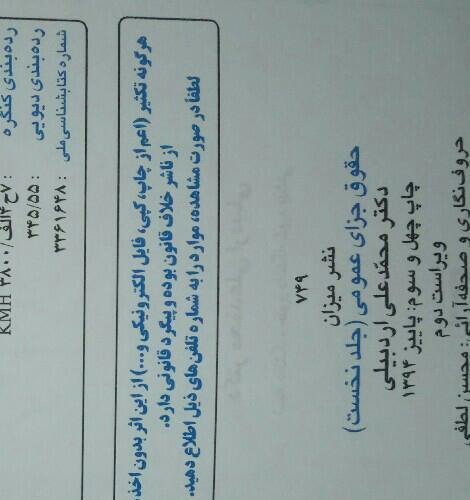 رده‌بندی کنگره : ۷ح۴الف/ KMH ۳۸۰۰
رده‌بندی دیویی : ۳۴۵/۵۵
شماره کتابشناسی ملی : ۳۳۶۱۶۴۸
هرگونه تکثیر (اعم از چاپ، کپی، فایل الکترونیکی و...) از این اثر بدون اخذ
از ناشر خلاف قانون بوده و پیگرد قانونی دارد.
لطفاً در صورت مشاهده، موارد را به شماره تلفن‌های ذیل اطلاع دهید.
۷۴۹
نشر میزان
حقوق جزای عمومی (جلد نخست)
دکتر محمدعلی اردبیلی
چاپ چهل و سوم: پاییز ۱۳۹۴
ویراست دوم
حروف‌نگاری و صفحه‌آرائی: محسن لطفی